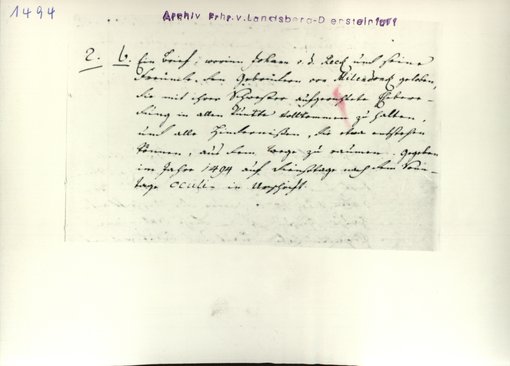 1494
Archiv Frhr.v.Landsberg-Drensteinfurt
2. 6. Ein Brief, worin Johann v. d. Reck und seine
Freunde den Gebrüdern von Milendonck geloben,
die mit ihrer Schwester aufgerichtete Eheberе-
dung in allen Puncten vollkommen zu halten,
und alle Hindernißen, die etwa entstehen
können, aus dem Wege zu räumen. gegeben
im Jahre 1494 auf Dienstage nach dem Sonn-
tage oculi in Urschrift.